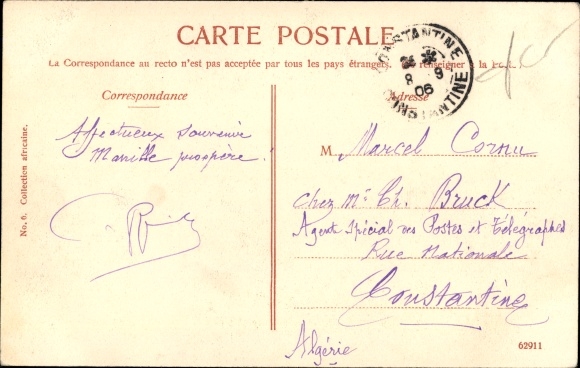 CARTE POSTALE
La Correspondance au recto n'est pas acceptée par tous les pays étrangers. renseigner à la
Correspondance
Adresse
CONSTANTINE
8 9
06
CONSTANTINE
Affectueux souvenir
prospère.
M Marcel Cornu
chez Mr Ch. Bruck
Agent Spécial des Postes et Télégraphes
Rue Nationale
Constantine
Algérie
No. 6. Collection africaine.
62911